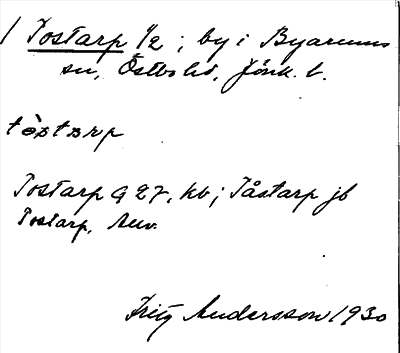 / Tostarp 1/2 ; by i Byarums
sn, Östbo hd, Jönk. l.
tòstarp
Tostarp G 27, kb; Tåstarp jb
Tostarp,
Fritz Andersson 1930